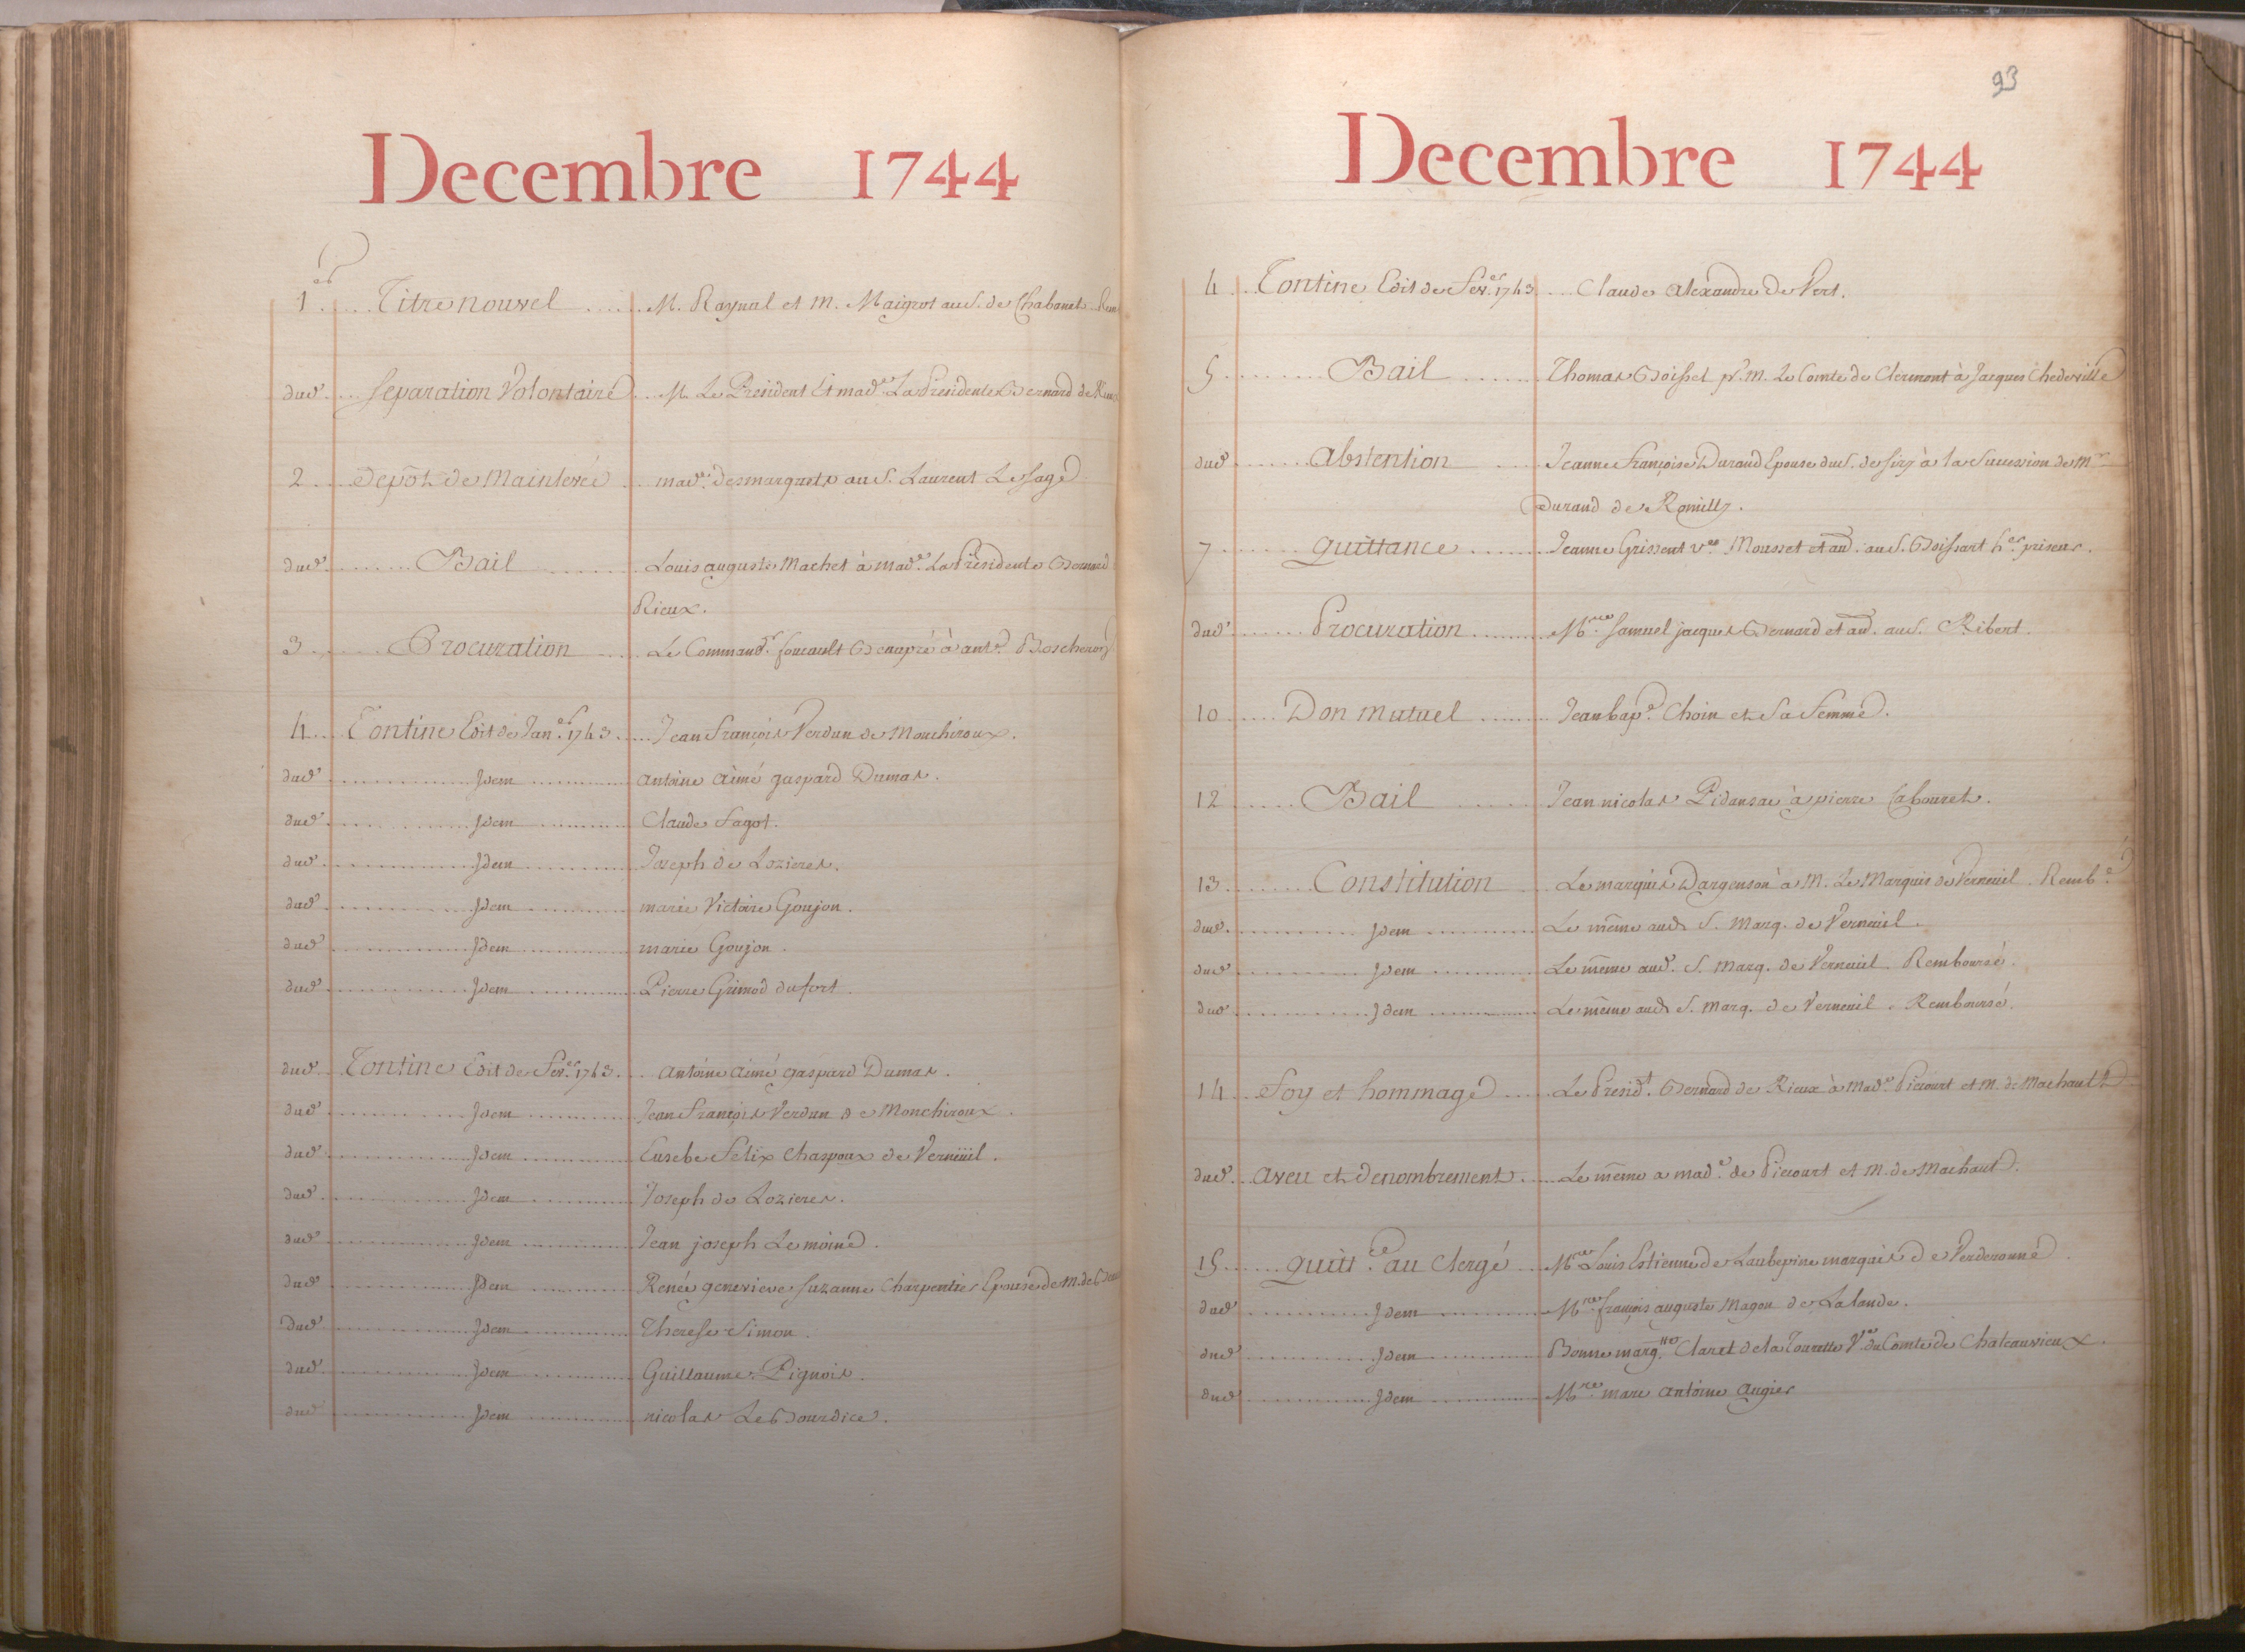 Decembre 1744
1er Titre nouvel M. Raynal et M. Maigrot au S. de Chabanet
dud. Separation Volontaire M. Le President Et mad.e La Presidente Bernard de
2 Depôt de Mainlevée mad.e desmarquets au S. Laurent Le sage
dud. Bail Louis auguste Machet à mad.e La Presidente Bernard
Rieux.
3 Procuration Le Command.r foucault Beaupré à ant.e
4 Tontine Edit de Jan.er 1743 Jean François Verdun de Monchiroux.
dud. Idem antoine aimé gaspard Dumas.
dud. Idem Claude Fagot.
dud. Idem Joseph de Lozieres.
dud. Idem marie Victoire Goujon.
dud. Idem marie Goujon.
dud. Idem Pierre Grimod dufort.
dud. Tontine Edit de Fev.er 1743. antoine aimé gaspard Dumas.
dud. Idem Jean François Verdun de Monchiroux.
dud. Idem Eusebe Felix Chaspoux de Verneüil.
dud. Idem Joseph de Lozieres.
dud. Idem Jean joseph Lemoine.
dud. Idem Renée genevieve suzanne Charpentier Epouse de M. de
Dud. Idem Therese Simon.
dud. Idem Guillaume Pignois.
dud. Idem nicolas Le Bourdice.
93
Decembre 1744
4 Tontine Edit de Fev.er 1743 Claude alexandre de Vert.
5 Bail Thomas Boissel pr. M. Le Comte de Clermont à Jacques Chedeville
dud. Abstention Jeanne Françoise Durand Epouse du S. de siry à la Succession de Mr
Durand de Romilly.
7 quittance Jeanne Grissent ve. Mousset et au. au S. Boissart h.er priseur.
dud. Procuration Mre. Samuel jacques Bernard et au. au S. Ribert.
10 Don mutuel Jean bap.e Choin et Sa Femme.
12 Bail Jean nicolas Pidansae à pierre Cabouret.
13 Constitution Le marquis Dargenson à M. Le Marquis de Verneuil. Remb.é
dud. Idem Le même aud. S. Marq. de Verneuil.
dud. Idem Le même aud. S. Marq. de Verneuil Remboursé.
dud. Idem Le même aud. S. Marq. de Verneuil. Remboursé.
14 Foy et hommage Le Presid.t Bernard de Rieux à Mad.e Piccourt et M. de Machault
dud. aveu et denombrement Le même a mad.e de Piccourt et M. de Machaut.
15 quitt.ce au Clergé Mre Louis Estienne de Laubepine marquis de Verderonne
dud. Idem Mre françois auguste Magon de Lalande.
dud. Idem Bonne marg.tte Claret de la Tourette Ve. du Comte de Chateauvieux.
dud. Idem Mre. marc antoine augier